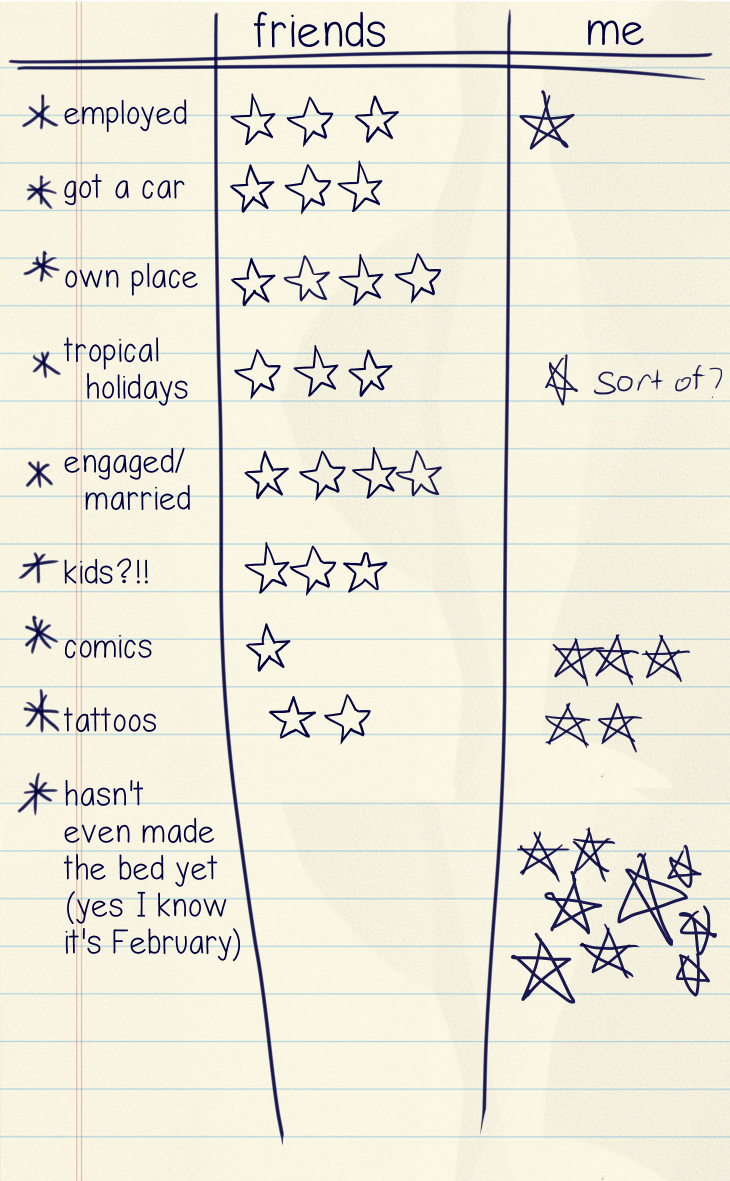 friends me
employed
got a car
own place
tropical
holidays
Sort of?
engaged/
married
kids?!!
comics
tattoos
hasn't
even made
the bed yet
(yes I know
it's February)